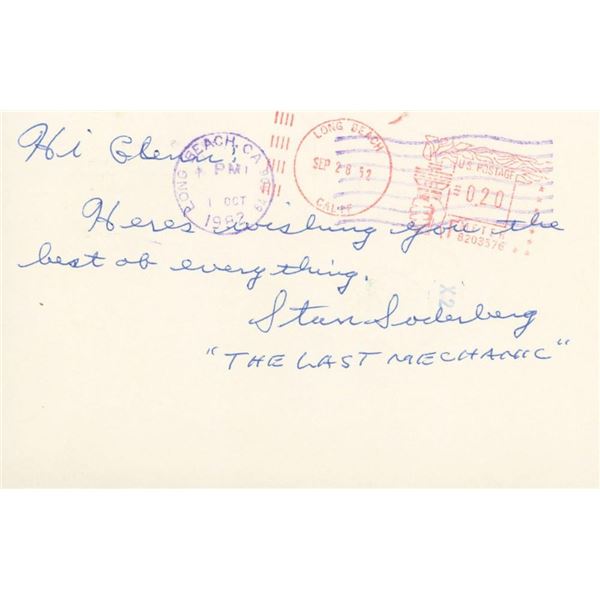 Hi Glenn;
LONG BEACH, CA
PM
1 OCT
1982
LONG BEACH
SEP 28 '82
CALIF
U.S. POSTAGE
0.20
8203576
Heres wishing you the
best of everything.
X2
Stan Soderberg
"THE LAST MECHANIC"